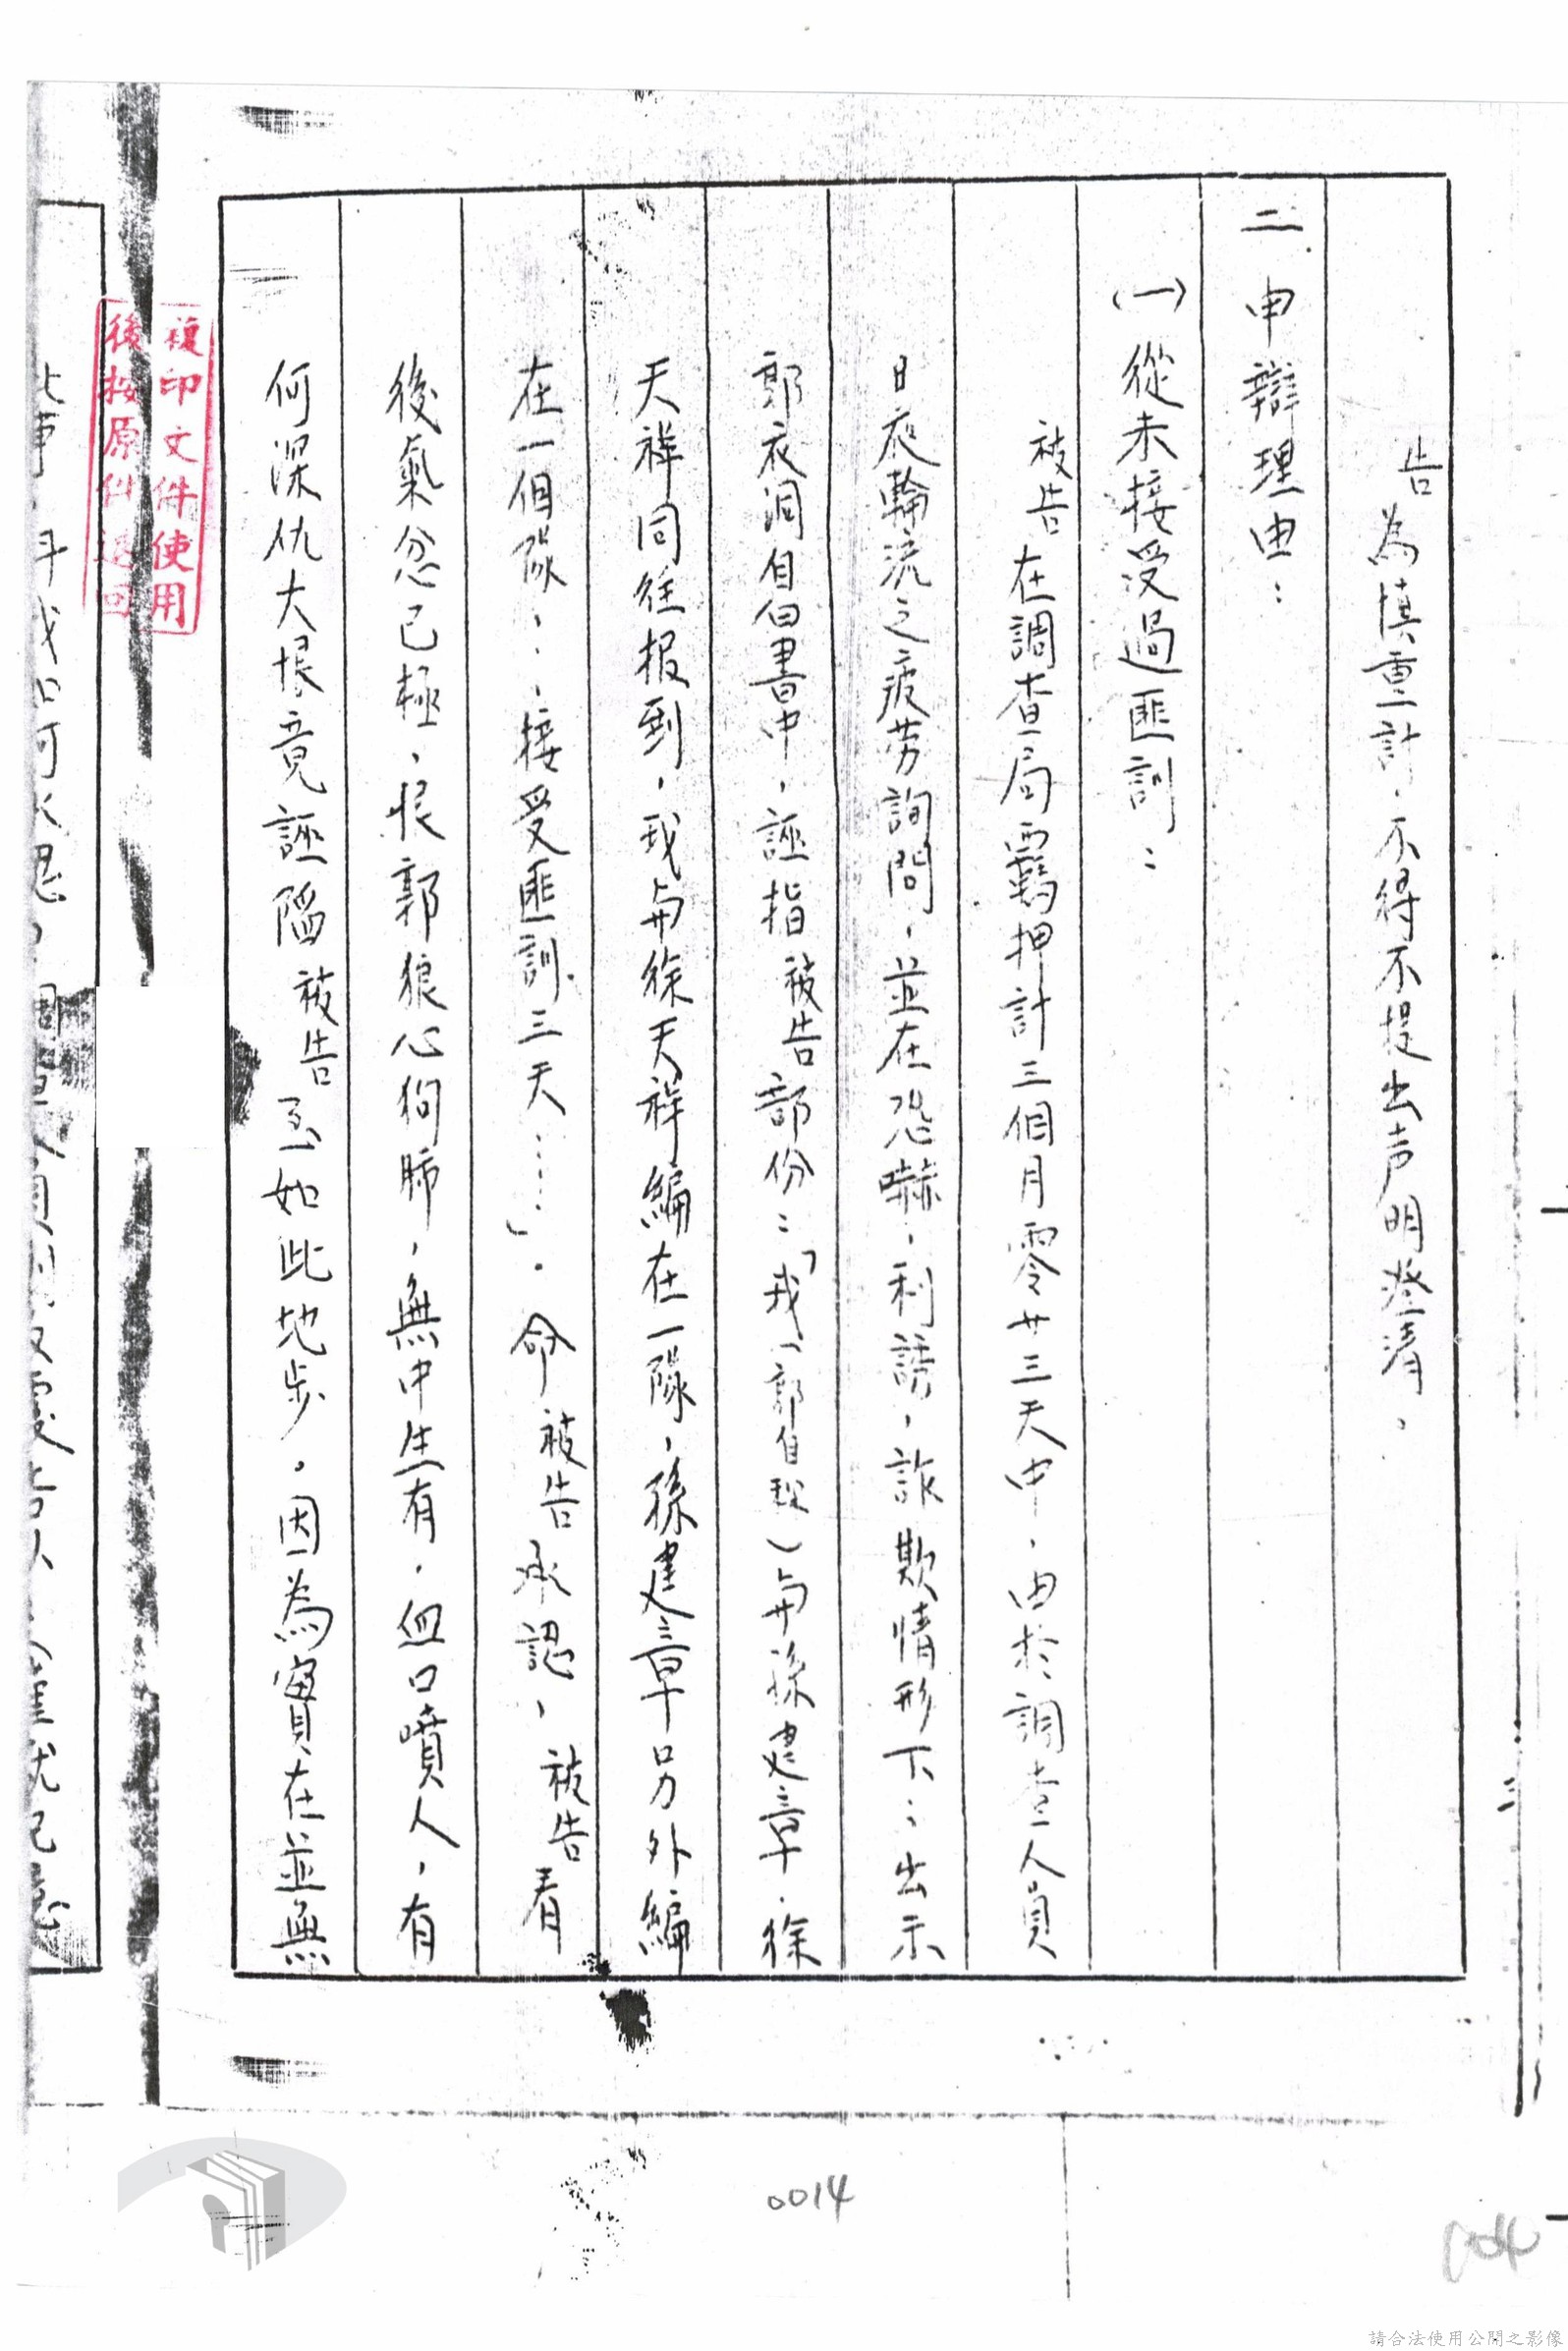 告為慎重計，不得不提出声明澄清。
二、申辯理由：
(一)從未接受過匪訓：
被告在調查局羈押計三個月零廿三天中，由於調查人員
日夜輪流之疲劳詢問，並在恐嚇，利誘，詐欺情形下；出示
郭衣洞自白書中，誣指被告部份：「我（郭自稱）与孫建章，徐
天祥同往报到，我与徐天祥編在一隊，孫建章另外編
在一個隊，接受匪訓三天……」。命被告承認，被告看
後氣忿已極，恨郭狼心狗肺，無中生有，血口噴人，有
何深仇大恨竟誣陷被告至如此地步。因為實在並無
複印文件使用
後按原件退回
三
0014
004
請合法使用公開之影像